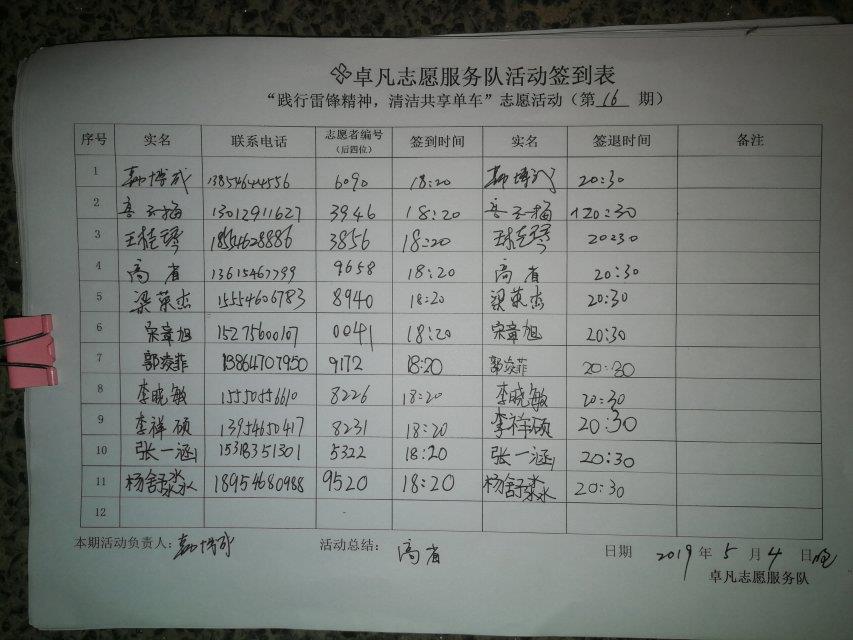 卓凡志愿服务队活动签到表
“践行雷锋精神，清洁共享单车”志愿活动（第 16 期）
序号 实名 联系电话 志愿者编号（后四位） 签到时间 实名 签退时间 备注
1 博成 13854644556 6090 18:20 博成 20:30
2 13012911627 3946 18:20 20:30
3 王桂琴 18554628886 3856 18:20 王桂琴 2030
4 高省 13615467799 9658 18:20 高省 20:30
5 梁荣杰 15554606783 8940 18:20 梁荣杰 20:30
6 宋章旭 15275600107 0041 18:20 宋章旭 20:30
7 郭凌菲 13864707950 9172 18:20 郭凌菲 20:30
8 李晓敏 15550556610 8226 18:20 李晓敏 20:30
9 李祥硕 13954650417 8231 18:20 李祥硕 20:30
10 张一涵 15318351301 5322 18:20 张一涵 20:30
11 杨舒淼 18954680988 9520 18:20 杨舒淼 20:30
12
本期活动负责人： 博成 活动总结： 高省 日期 2019 年 5 月 4 日 晚
卓凡志愿服务队